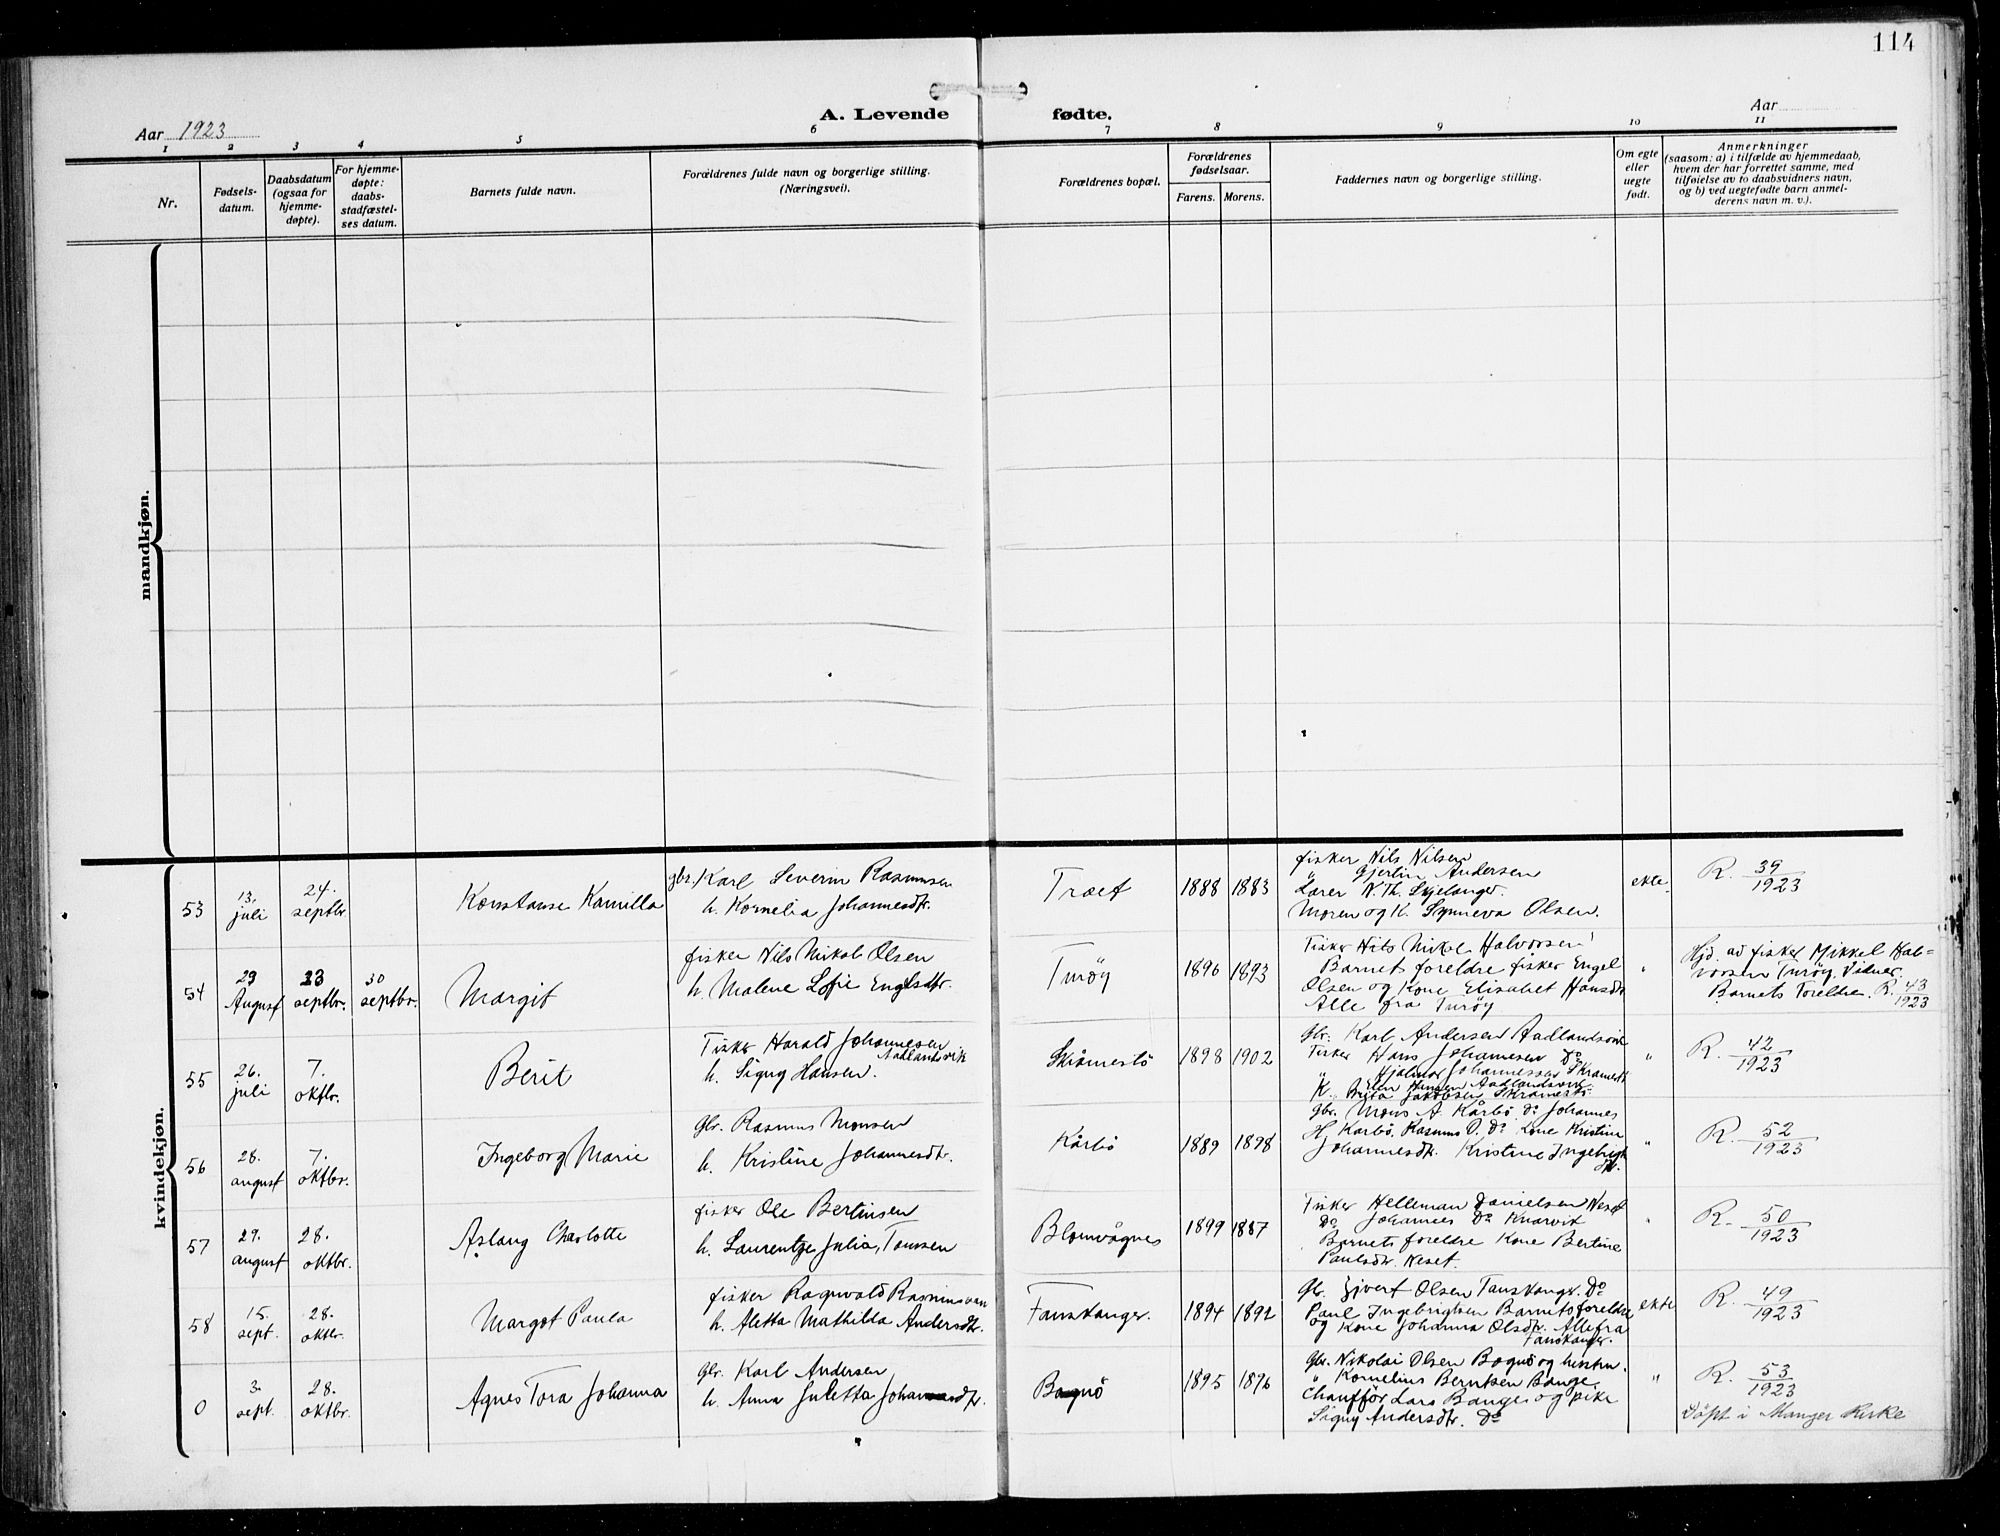 114
A. Levende fødte.
Aar 1923
Aar
1 2 3 4 5 6 7 8 9 10 11
Nr.
Fødsels-
datum.
Daabsdatum
(ogsaa for
hjemme-
døpte).
For hjemme-
døpte:
daabs-
stadfæstel-
ses datum.
Barnets fulde navn.
Forældrenes fulde navn og borgerlige stilling.
(Næringsvei).
Forældrenes bopæl.
Forældrenes
fødselsaar.
Farens. Morens.
Faddernes navn og borgerlige stilling.
Om egte
eller
uegte
født.
Anmerkninger
(saasom: a) i tilfælde av hjemmedaab,
hvem der har forrettet samme, med
tilføielse av to daabsvidners navn,
og b) ved uegtefødte barn anmel-
derens navn m. v.).
mandkjøn.
kvindekjøn.
53
13.
juli
24.
septbr.
Konstanse Kamilla
gbr. Karl Severin Rasmussen
h. Kornelia Johannesdtr.
Træet
1888 1883
fisker Nils Nilsen
" Gjertin Andersen
Lærer N. Th. Skjelanger.
Moren og K. Synneva Olsen.
ekte.
R. 39/1923
54
29
August
23
septbr.
30
septbr.
Margit
fisker Nils Nikol. Olsen
h. Malene Lofie Engelsdtr.
Turøy
1896 1893
Fisker Nils Nikol. Halvorsen
Barnets foreldre fisker Engel
Olsen og Kone Elisabet Hansdtr
Alle fra Turøy
"
Hjd. av fisker Mikkel Hal-
vorsen Turøy. Vidner.
Barnets Foreldre. R. 43/1923
55
26.
juli
7.
oktbr.
Berit
Fisker Harald Johannesen
Aadlandsvik
h. Signy Hansen.
Skråmestö
1898 1902
Gbr. Karl Andersen Aadlandsvik
Fisker Hans Johannesen Do
" Hjalmar Johannessen Skramestö
K. Elen Hansen Aadlandsvik
" Brita Jakobsen Skramestö
"
R. 42/1923
56
28.
august
7.
oktbr.
Ingeborg Marie
Gbr. Rasmus Monsen
h. Kristine Johannesdtr.
Kårbö
1889 1898
Gbr. Mons A. Kårbö. Do Johannes
Hj Karbö. Rasmus O. Do Kone Kristine
Johannesdtr. Kristine Ingebrigt
dtr.
"
R. 52/1923
57
29.
august
28.
oktbr.
Aslaug Charlotte
fisker Ole Bertinsen
h. Laurentze Julia, Tomsen
Blomvågnes
1899 1887
Fisker Helleman Danielsen Neset
Do Johannes Do Knarvik
Barnets foreldre Kone Bertine
Paulsdtr. Neset.
"
R. 50/1923
58
15.
sept.
28.
oktbr.
Margot Paula
fisker Ragnvald Rasmussen
h. Aletta Mathilda Andersdtr.
Fanskanger.
1894 1892
Gbr. Sjvert Olsen Fanskanger. Do
Paul Ingebrigtsen Barnets foreldre
og Kone Johanna Olsdtr. Alle fra
Fanskanger.
ekte
R. 49/1923
0
3.
sept.
28.
oktbr.
Agnes Tora Johanna
Gbr. Karl Andersen
h. Anna Juletta Johannesdtr.
Bognö
1895 1896
Gbr. Nikolai Olsen Bognö og hustru.
" Kornelius Berntsen Bauge
Chauffør Lars Bauge og pike
Signy Andersdtr. Do
"
R. 53/1923
Döpt i Manger Kirke